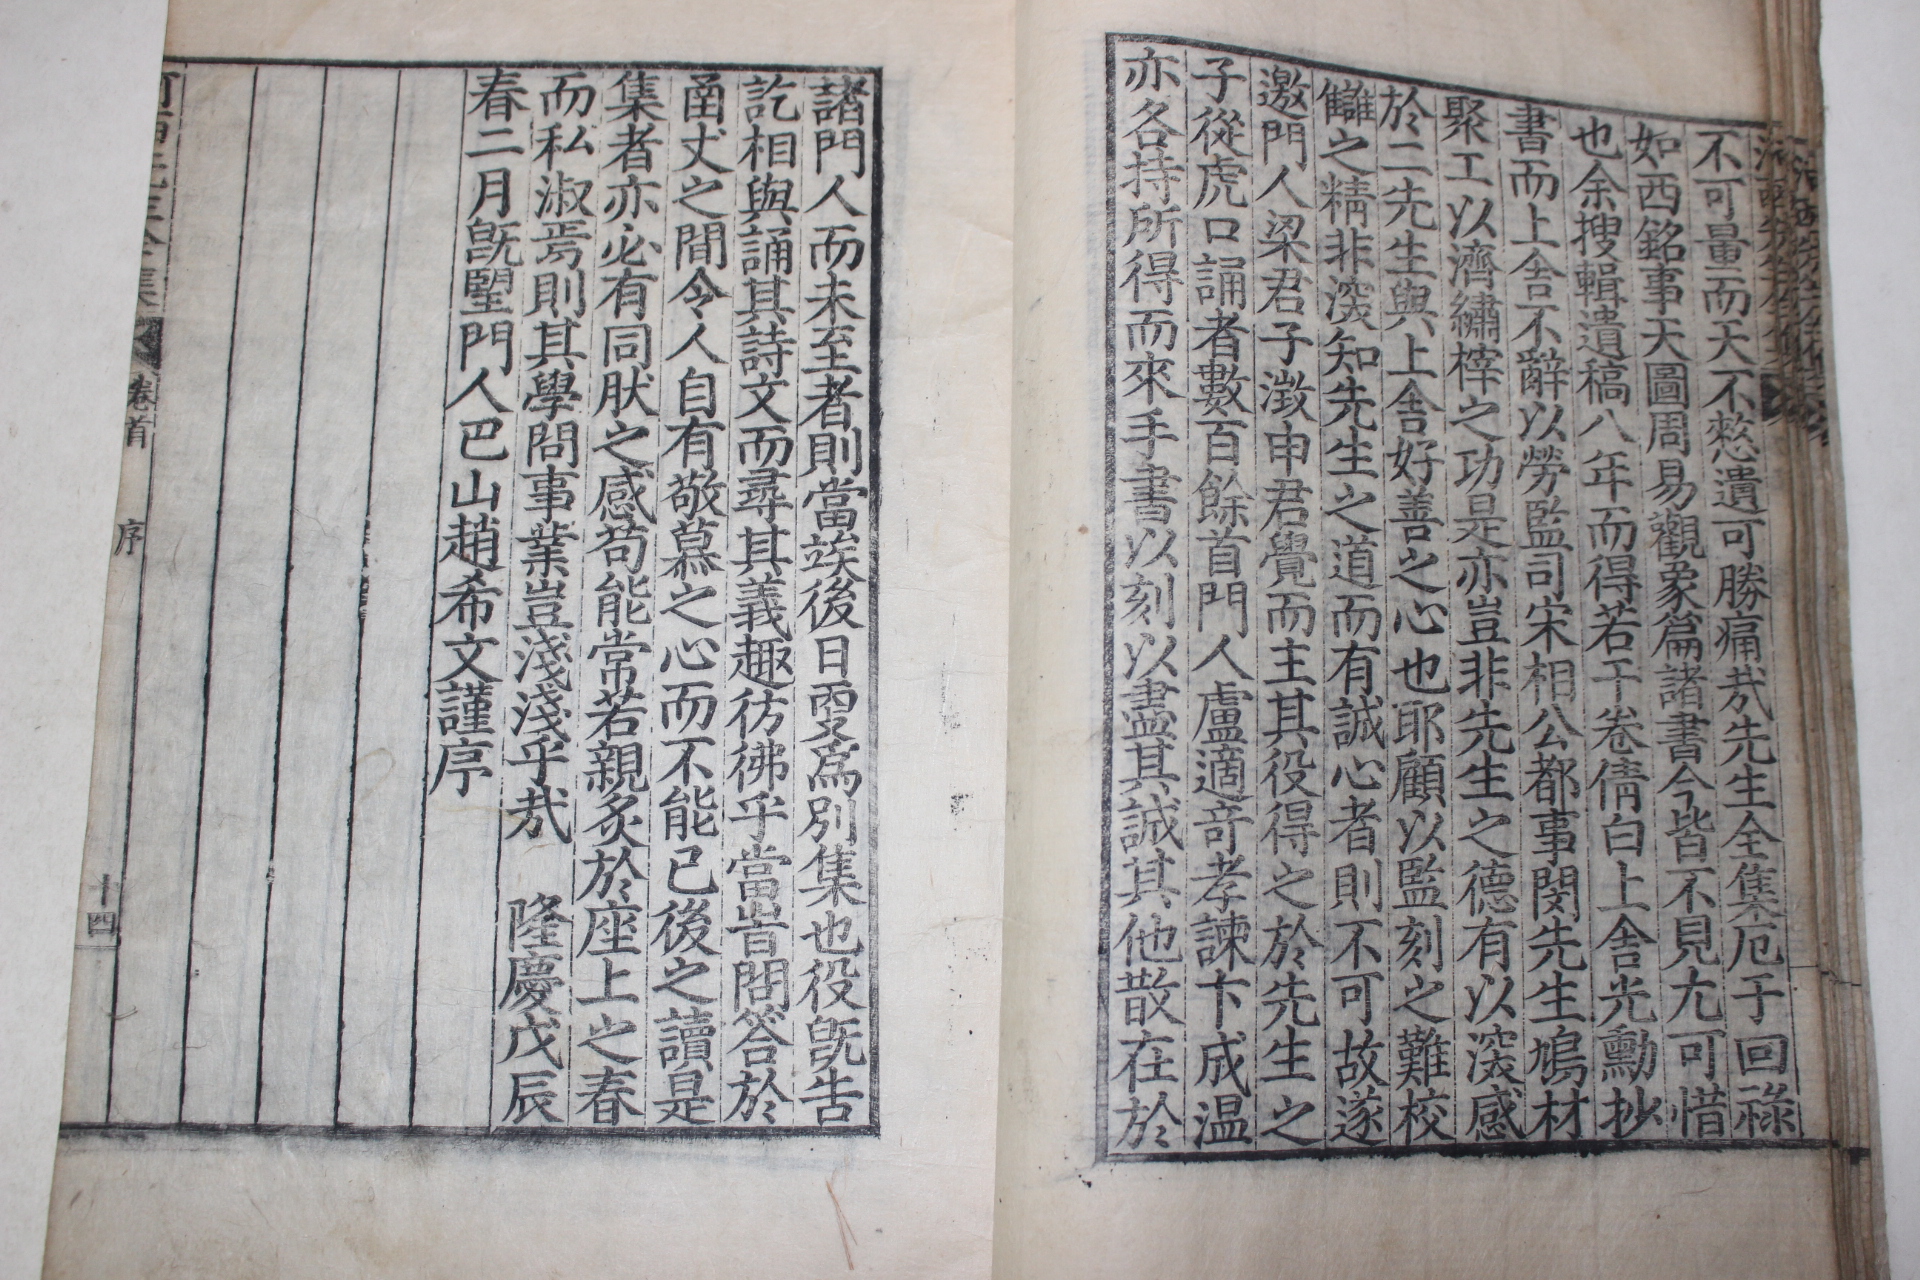 不可量而天不憖遺可勝痛㢤先生全集厄于回祿
如西銘事天圖周易觀象篇諸書今皆不見尤可惜
也余搜輯遺稿八年而得若干卷倩白上舍光勳抄
書而上舍不辭以勞監司宋相公都事閔先生鳩材
聚工以濟繡梓之功是亦豈非先生之德有以深感
於二先生與上舍好善之心也耶顧以監刻之難校
讎之精非深知先生之道而有誠心者則不可故遂
邀門人梁君子澂申君覺而主其役得之於先生之
子從虎口誦者數百餘首門人盧適竒孝諫卞成溫
亦各持所得而來手書以刻以盡其誠其他散在於
諸門人而未至者則當竢後日更爲別集也役旣告
訖相與誦其詩文而尋其義趣彷彿乎當昔問答於
凾丈之間令人自有敬慕之心而不能已後之讀是
集者亦必有同肰之感苟能常若親炙於座上之春
而私淑焉則其學問事業豈淺淺乎㢤 隆慶戊辰
春二月旣朢門人巴山趙希文謹序
卷首 序 十四